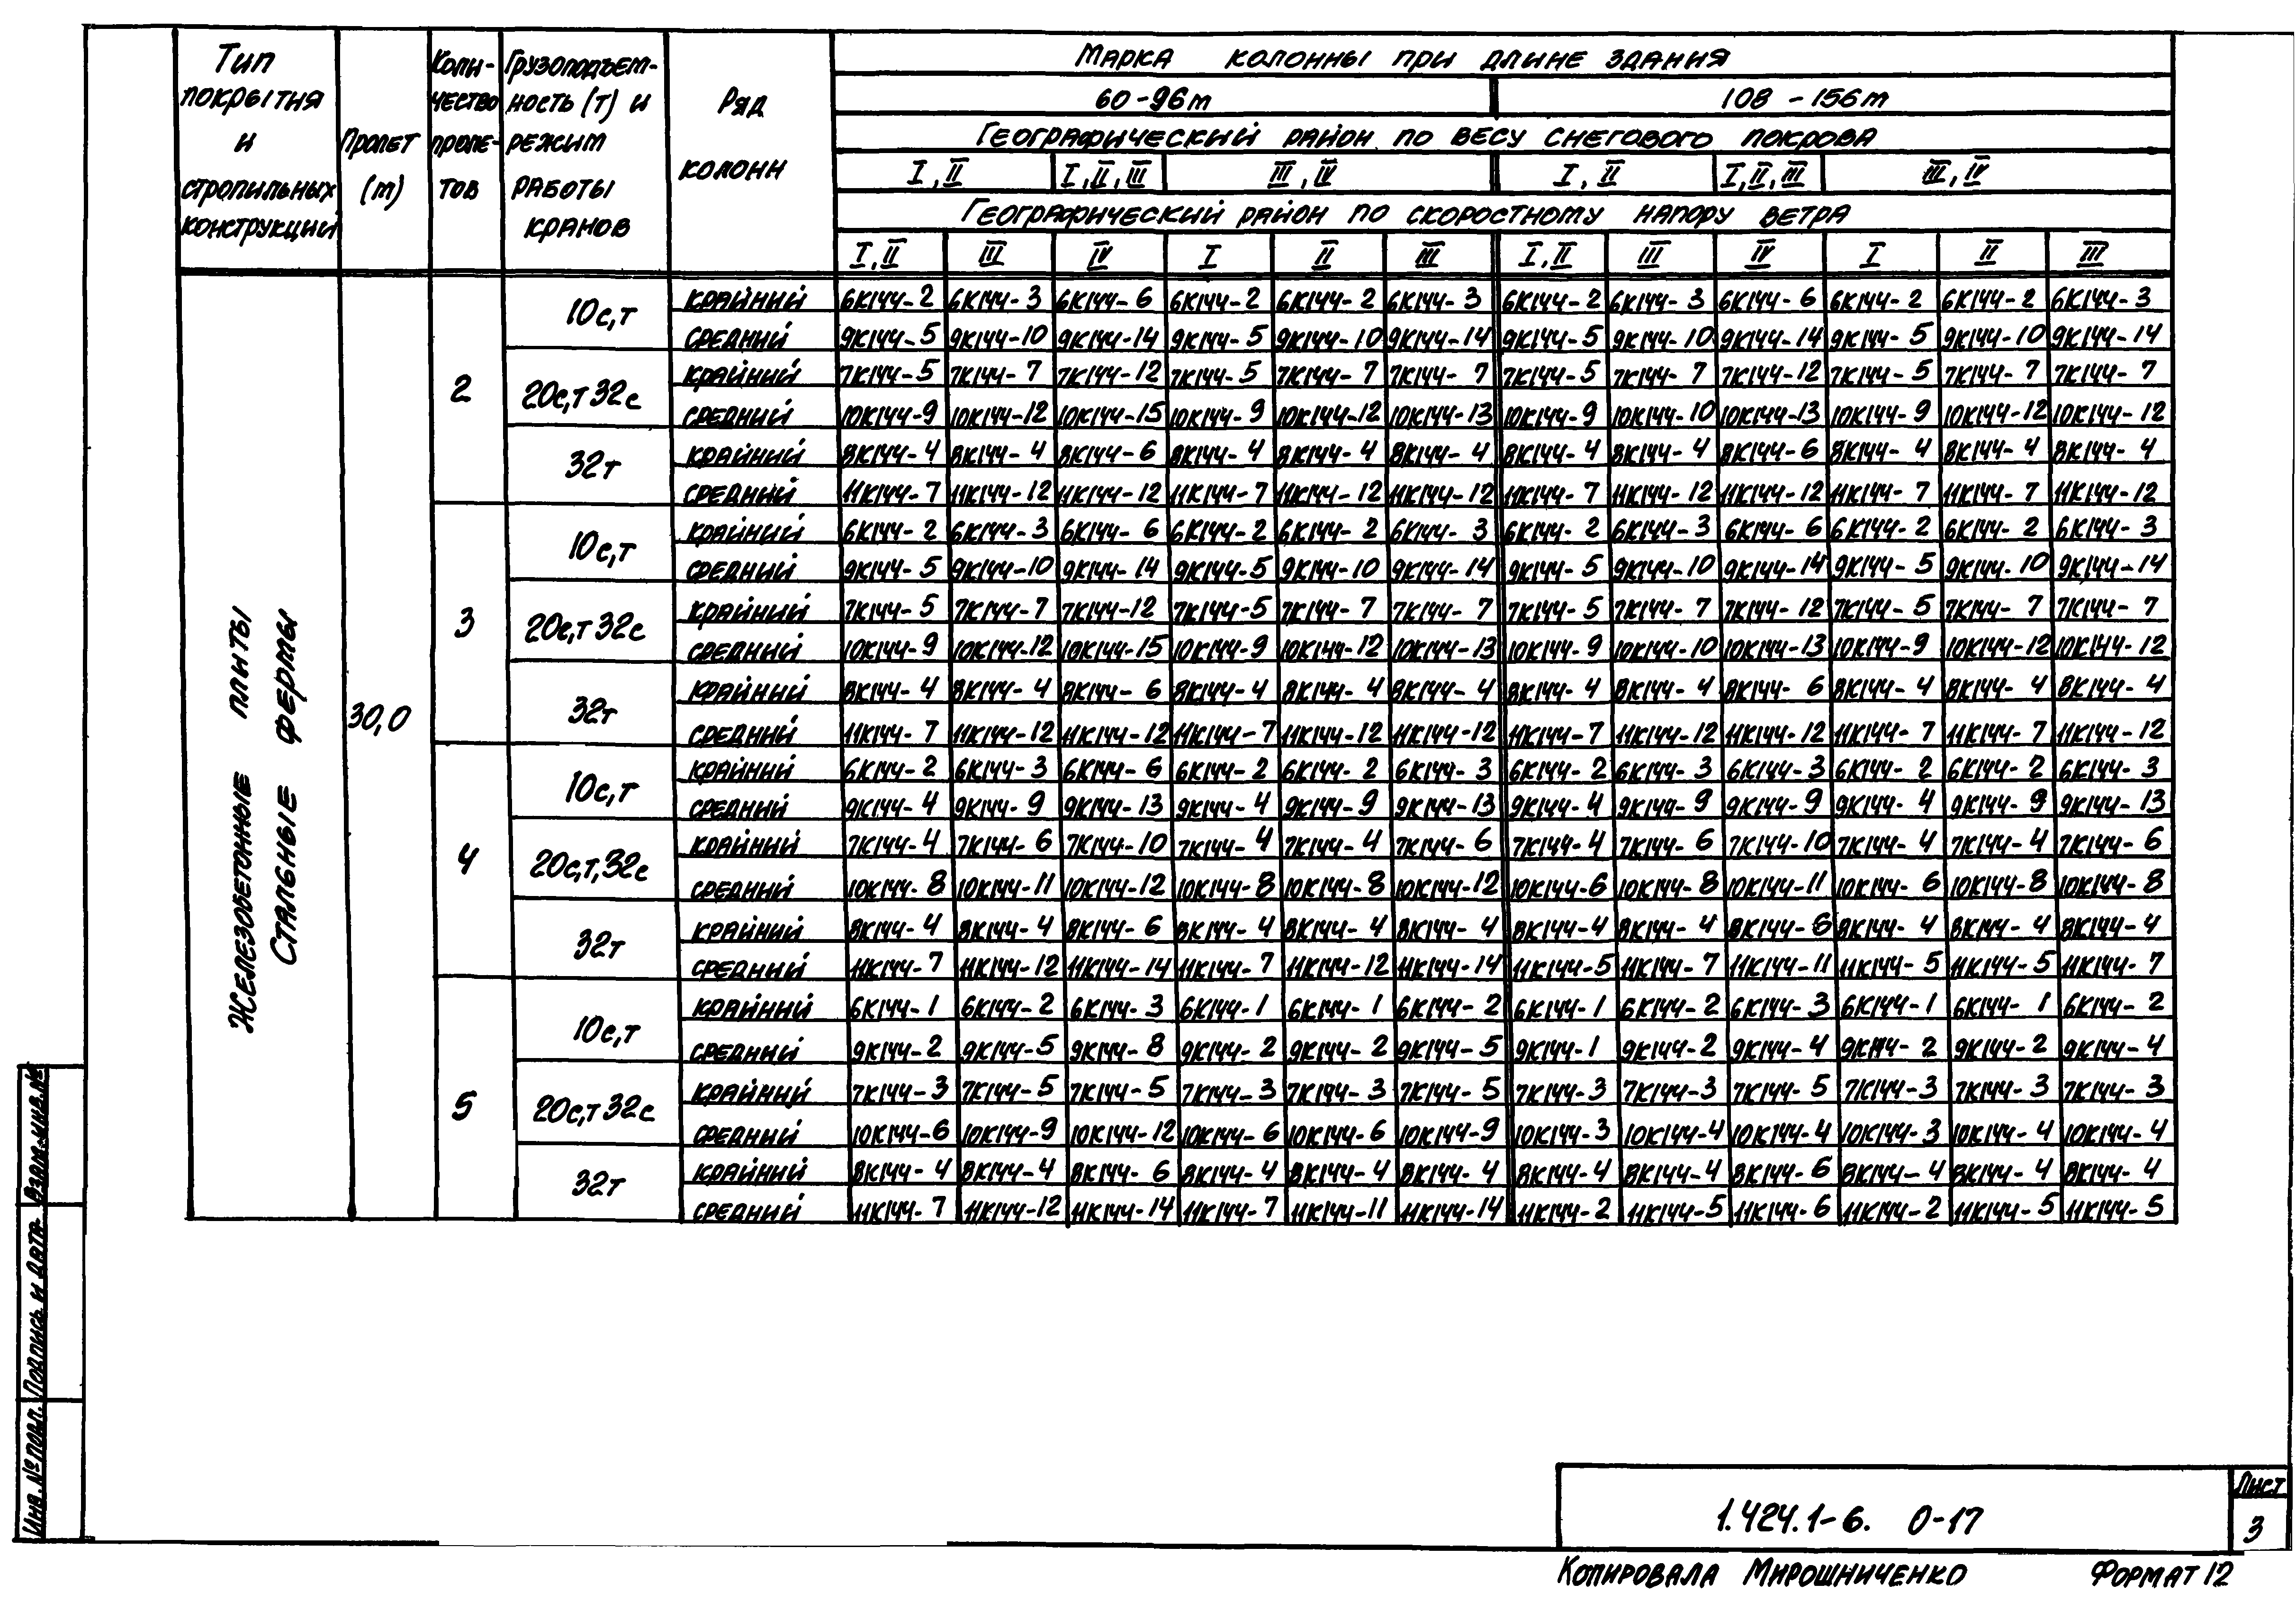 Тип покрытия и стропильных конструкций
Пролет (м)
Коли-чество проле-тов
Грузоподъем-ность (т) и режим работы кранов
Ряд колонн
Марка колонны при длине здания
60-96м 108-156м
Географический район по весу снегового покрова
I, II I, II, III III, IV I, II I, II, III III, IV
Географический район по скоростному напору ветра
I, II III IV I II III I, II III IV I II III
Железобетонные плиты
Стальные фермы
30,0
2
10с,т
крайний 6К144-2 6К144-3 6К144-6 6К144-2 6К144-2 6К144-3 6К144-2 6К144-3 6К144-6 6К144-2 6К144-2 6К144-3
средний 9К144-5 9К144-10 9К144-14 9К144-5 9К144-10 9К144-14 9К144-5 9К144-10 9К144-14 9К144-5 9К144-10 9К144-14
20с,т 32с
крайний 7К144-5 7К144-7 7К144-12 7К144-5 7К144-7 7К144-7 7К144-5 7К144-7 7К144-12 7К144-5 7К144-7 7К144-7
средний 10К144-9 10К144-12 10К144-15 10К144-9 10К144-12 10К144-13 10К144-9 10К144-10 10К144-13 10К144-9 10К144-12 10К144-12
32т
крайний 8К144-4 8К144-4 8К144-6 8К144-4 8К144-4 8К144-4 8К144-4 8К144-4 8К144-6 8К144-4 8К144-4 8К144-4
средний 11К144-7 11К144-12 11К144-12 11К144-7 11К144-12 11К144-12 11К144-7 11К144-12 11К144-12 11К144-7 11К144-7 11К144-12
3
10с,т
крайний 6К144-2 6К144-3 6К144-6 6К144-2 6К144-2 6К144-3 6К144-2 6К144-3 6К144-6 6К144-2 6К144-2 6К144-3
средний 9К144-5 9К144-10 9К144-14 9К144-5 9К144-10 9К144-14 9К144-5 9К144-10 9К144-14 9К144-5 9К144-10 9К144-14
20с,т 32с
крайний 7К144-5 7К144-7 7К144-12 7К144-5 7К144-7 7К144-7 7К144-5 7К144-7 7К144-12 7К144-5 7К144-7 7К144-7
средний 10К144-9 10К144-12 10К144-15 10К144-9 10К144-12 10К144-13 10К144-9 10К144-10 10К144-13 10К144-9 10К144-12 10К144-12
32т
крайний 8К144-4 8К144-4 8К144-6 8К144-4 8К144-4 8К144-4 8К144-4 8К144-4 8К144-6 8К144-4 8К144-4 8К144-4
средний 11К144-7 11К144-12 11К144-12 11К144-7 11К144-12 11К144-12 11К144-7 11К144-12 11К144-12 11К144-7 11К144-7 11К144-12
4
10с,т
крайний 6К144-2 6К144-3 6К144-6 6К144-2 6К144-2 6К144-3 6К144-2 6К144-3 6К144-3 6К144-2 6К144-2 6К144-3
средний 9К144-4 9К144-9 9К144-13 9К144-4 9К144-9 9К144-13 9К144-4 9К144-9 9К144-9 9К144-4 9К144-9 9К144-13
20с,т,32с
крайний 7К144-4 7К144-6 7К144-10 7К144-4 7К144-4 7К144-6 7К144-4 7К144-6 7К144-10 7К144-4 7К144-4 7К144-6
средний 10К144-8 10К144-11 10К144-12 10К144-8 10К144-8 10К144-12 10К144-6 10К144-8 10К144-11 10К144-6 10К144-8 10К144-8
32т
крайний 8К144-4 8К144-4 8К144-6 8К144-4 8К144-4 8К144-4 8К144-4 8К144-4 8К144-6 8К144-4 8К144-4 8К144-4
средний 11К144-7 11К144-12 11К144-14 11К144-7 11К144-12 11К144-14 11К144-5 11К144-7 11К144-11 11К144-5 11К144-5 11К144-7
5
10с,т
крайний 6К144-1 6К144-2 6К144-3 6К144-1 6К144-1 6К144-2 6К144-1 6К144-2 6К144-3 6К144-1 6К144-1 6К144-2
средний 9К144-2 9К144-5 9К144-8 9К144-2 9К144-2 9К144-5 9К144-1 9К144-2 9К144-4 9К144-2 9К144-2 9К144-4
20с,т 32с
крайний 7К144-3 7К144-5 7К144-5 7К144-3 7К144-3 7К144-5 7К144-3 7К144-3 7К144-5 7К144-3 7К144-3 7К144-3
средний 10К144-6 10К144-9 10К144-12 10К144-6 10К144-6 10К144-9 10К144-3 10К144-4 10К144-4 10К144-3 10К144-4 10К144-4
32т
крайний 8К144-4 8К144-4 8К144-6 8К144-4 8К144-4 8К144-4 8К144-4 8К144-4 8К144-6 8К144-4 8К144-4 8К144-4
средний 11К144-7 11К144-12 11К144-14 11К144-7 11К144-11 11К144-14 11К144-2 11К144-5 11К144-6 11К144-2 11К144-5 11К144-5
Взам.инв.№
Подпись и дата
Инв.№подл.
1.424.1-6. 0-17
Лист
3
Копировала Мирошниченко Формат 12